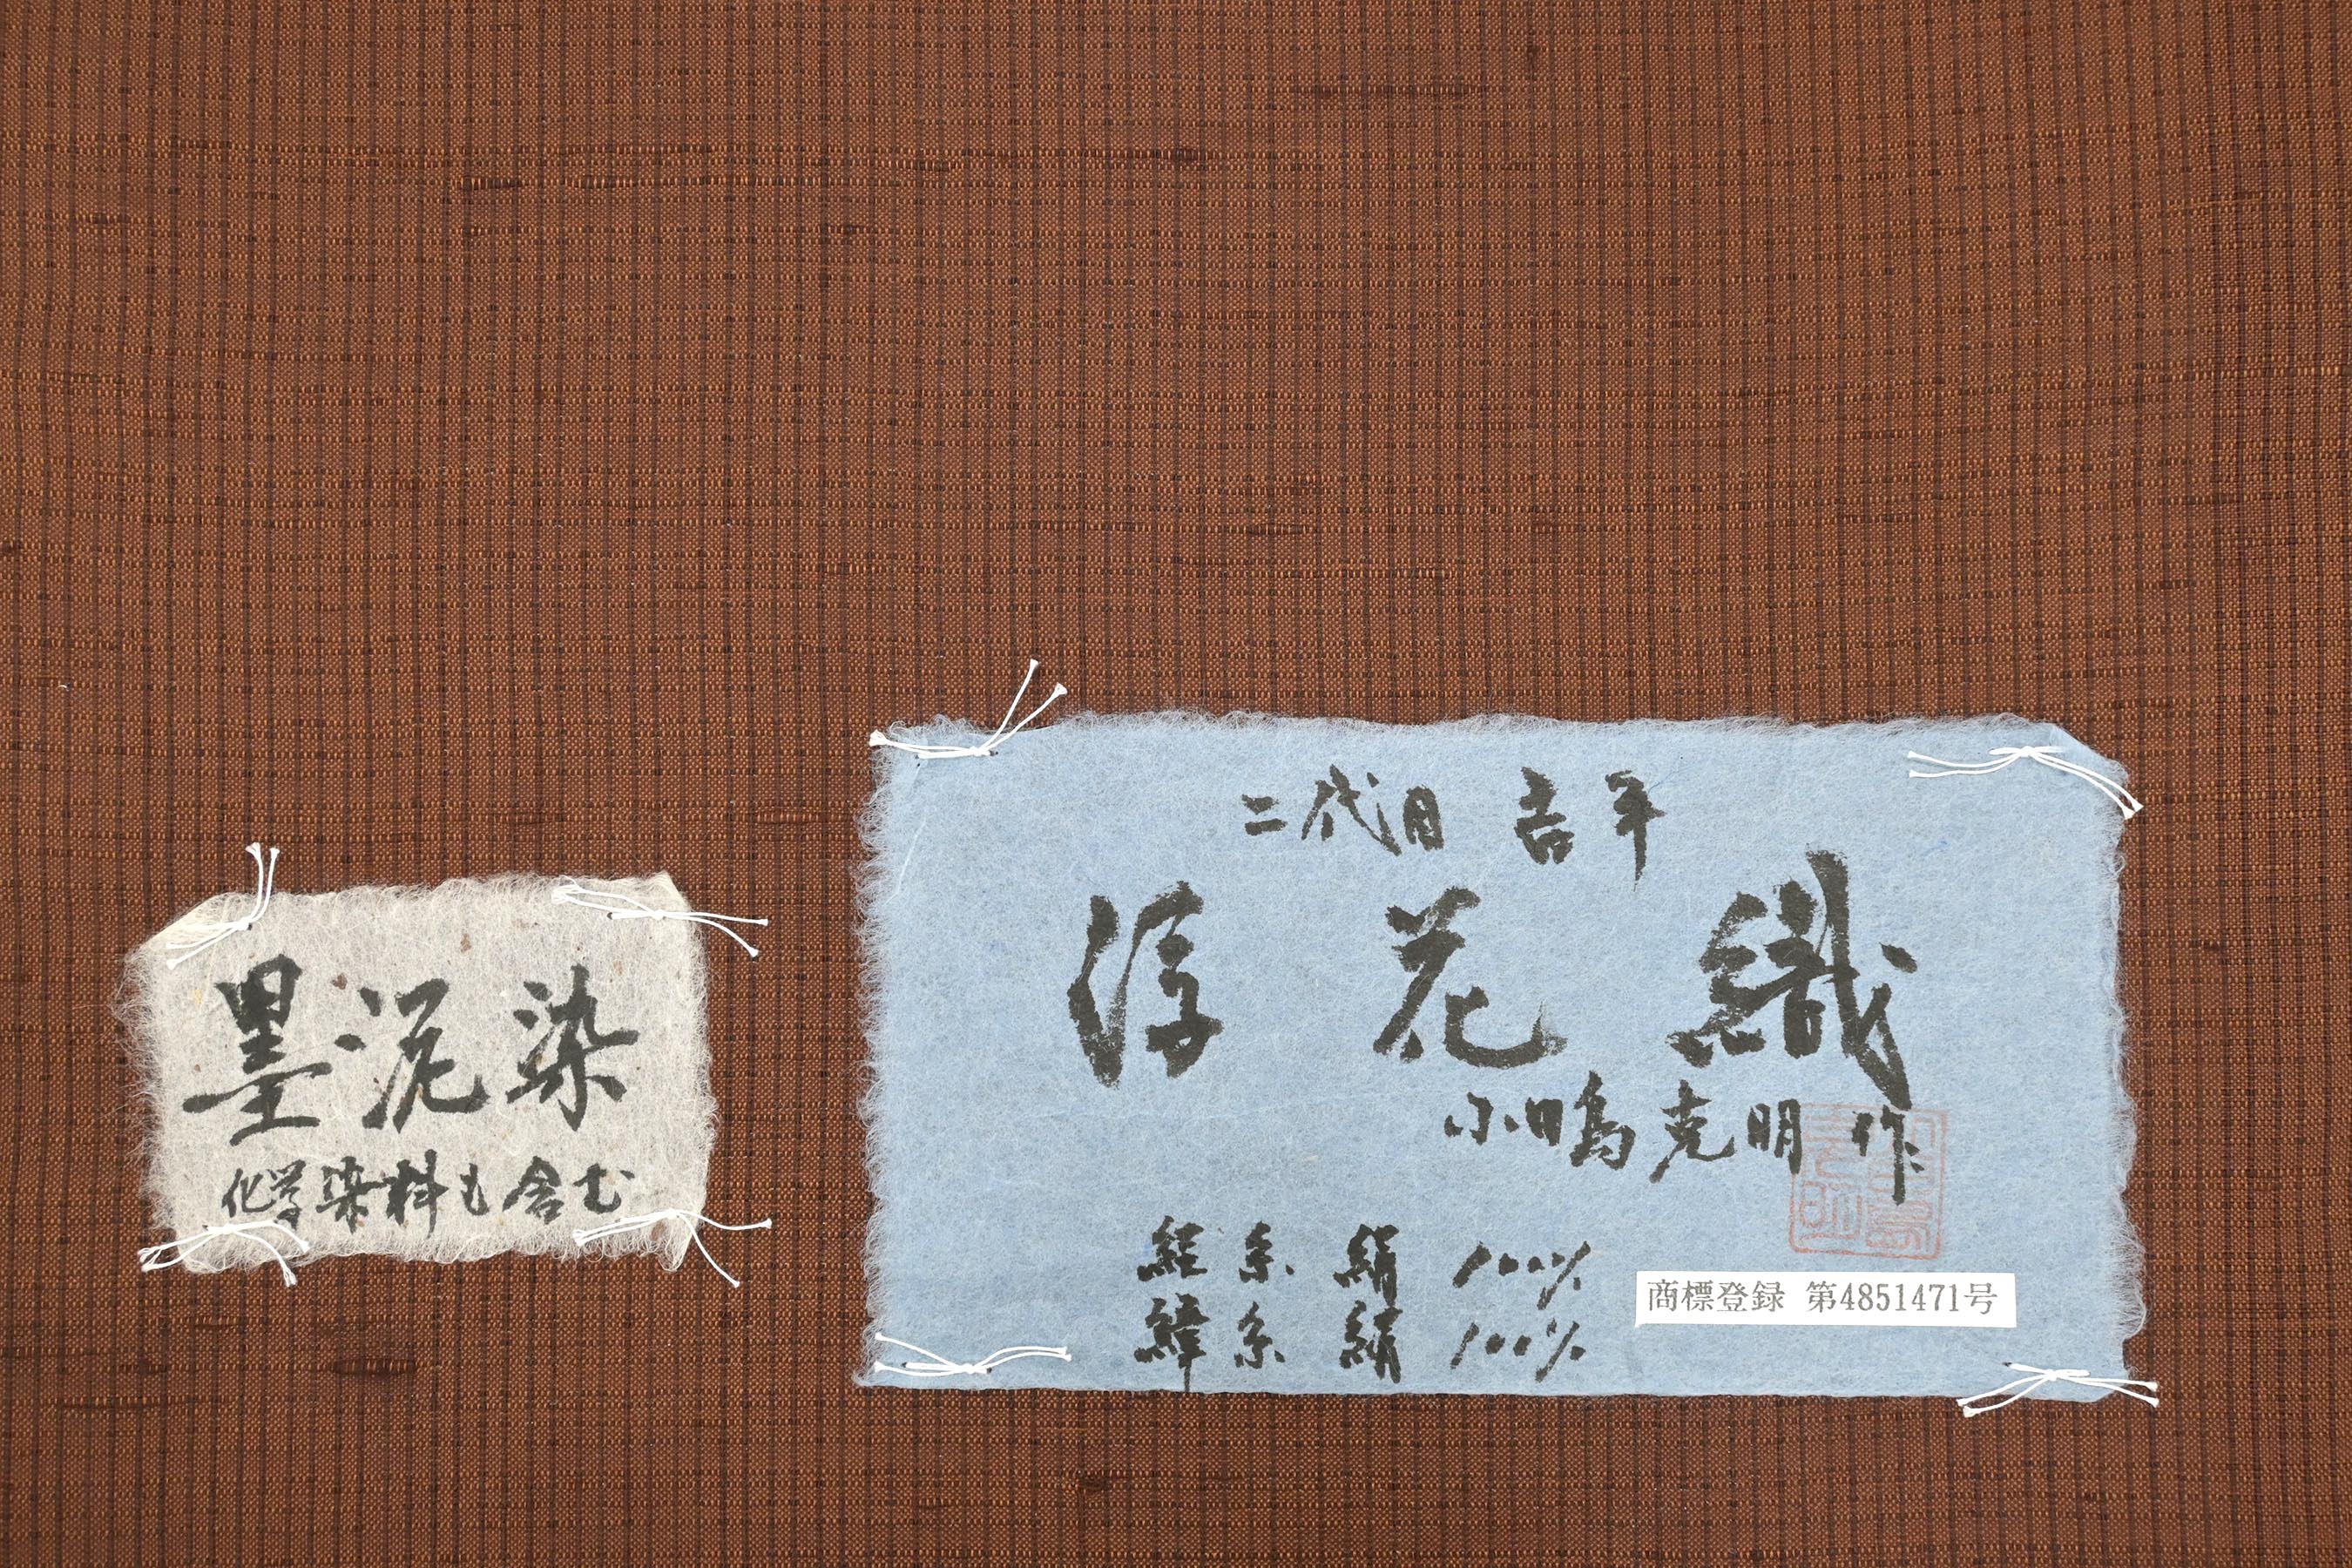 墨泥染
化学染料も含む
二代目 吉平
浮花織
小嶋克明 作
経糸 絹 100%
緯糸 絹 100%
商標登録 第4851471号